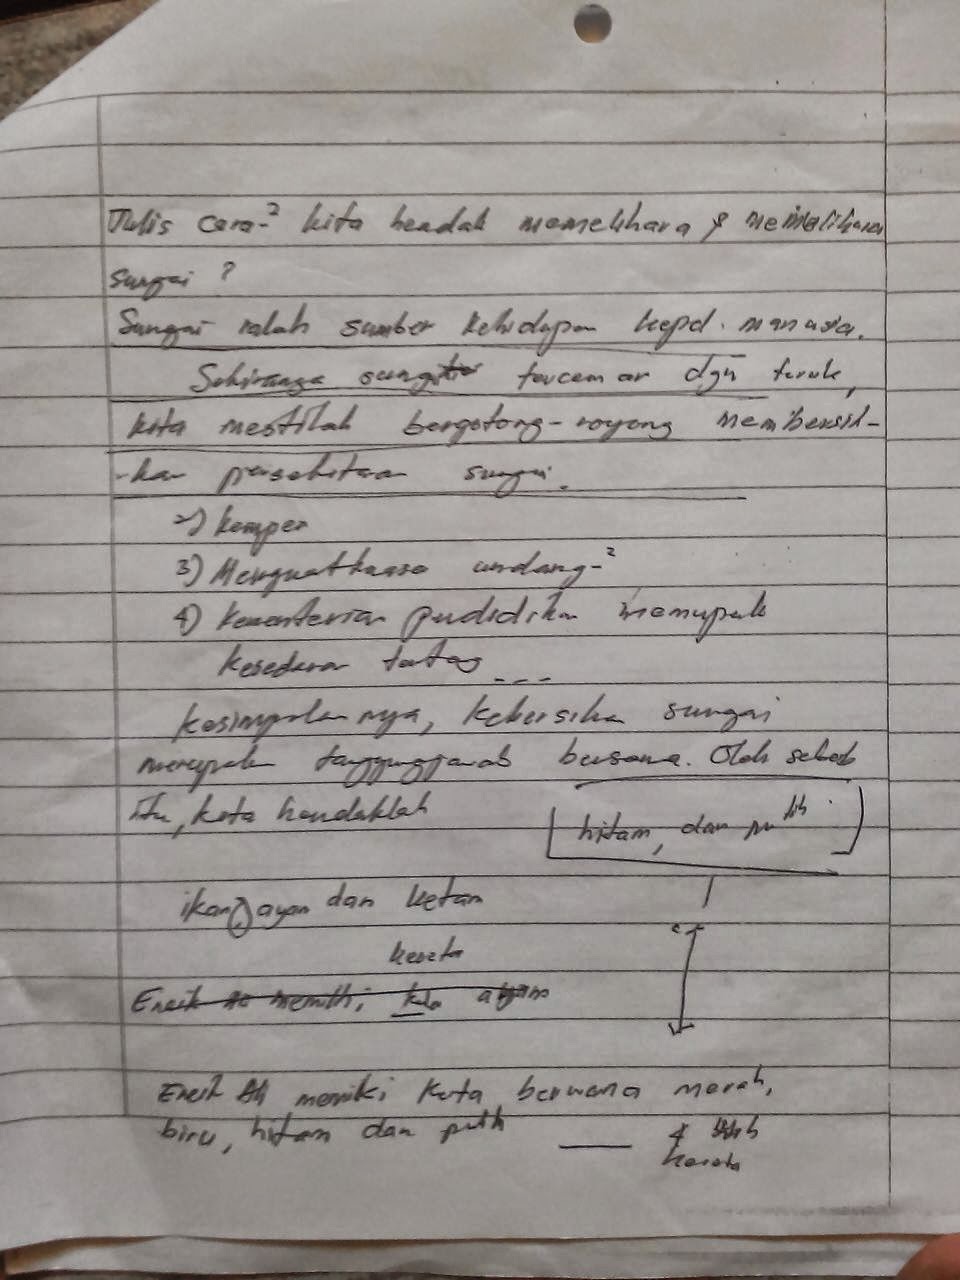 Tulis cara-2 kita hendak memelihara & memelihara
sungai?
Sungai ialah sumber kehidupan kepd. manusia.
Sekiranya sungai tercemar dgn teruk,
kita mestilah bergotong-royong membersih-
-kan persekitaran sungai.
2) kempen
3) Menguatkuasa undang-2
4) Kementerian pendidikan memupuk
kesedaran tentang
kesimpulannya, kebersihan sungai
merupakan tanggungjawab bersama. Oleh sebab
itu, kita hendaklah
[hitam, dan putih]
ikan, ayam dan ketam
kereta
Encik memiliki ayam
Encik Ali memiliki kereta berwarna merah,
biru, hitam dan putih
4
kereta